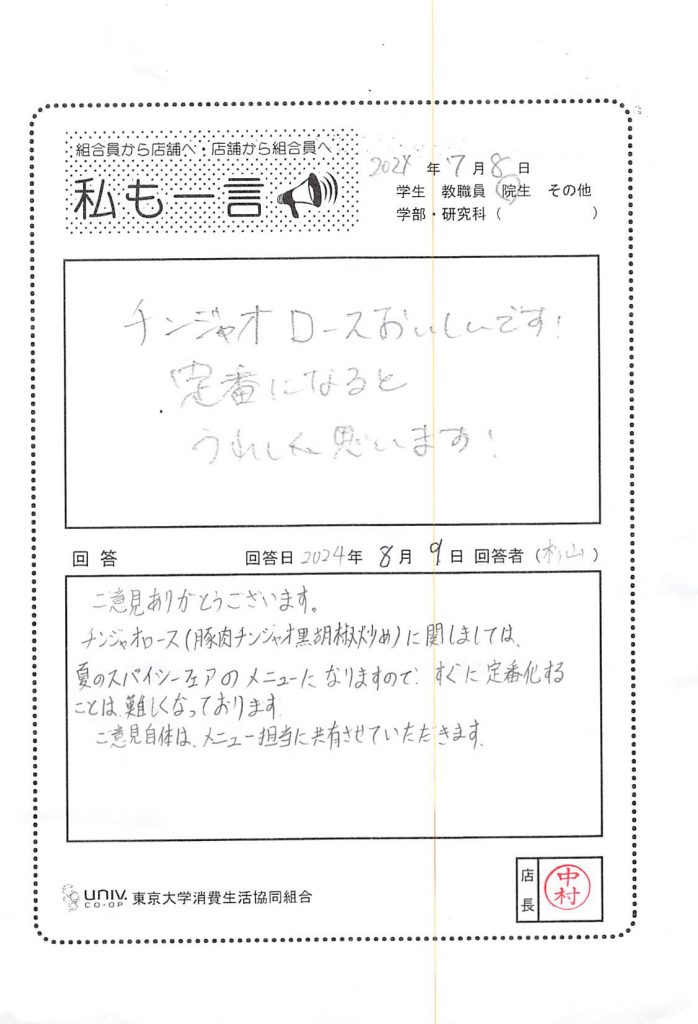 組合員から店舗へ・店舗から組合員へ
私も一言
2024年7月8日
学生 教職員 院生 その他
学部・研究科( )
チンジャオロースおいしいです!
定番になると
うれしく思います!
回答 回答日2024年8月9日 回答者(杉山)
ご意見ありがとうございます。
チンジャオロース(豚肉チンジャオ黒胡椒炒め)に関しましては、
夏のスパイシーフェアのメニューになりますので、すぐに定番化する
ことは、難しくなっております。
ご意見自体は、メニュー担当に共有させていただきます。
UNIV. CO-OP 東京大学消費生活協同組合
店長 中村